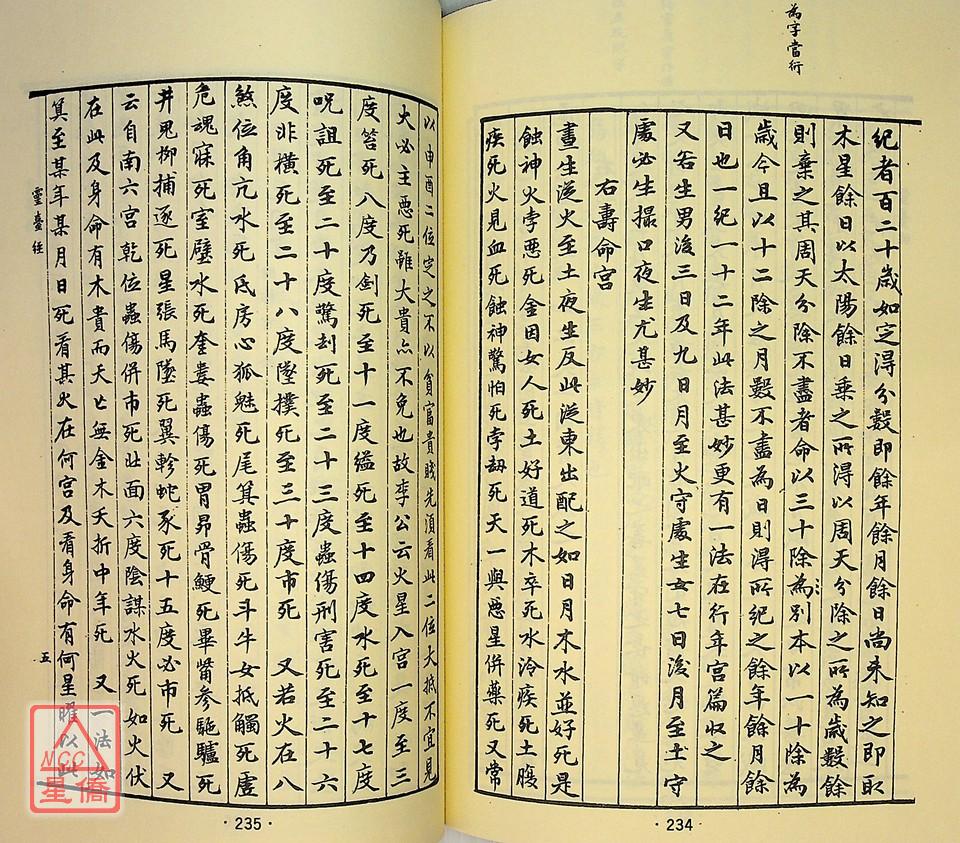 為字當行
紀者百二十歲如定得分數即餘年餘月餘日尚未知之即取
木星餘日以太陽餘日乗之所得以周天分除之所為歲數餘
則棄之其周天分除不盡者命以三十除為別本以一十除為
歲今且以十二除之月數不盡為日則得所紀之餘年餘月餘
日也一紀一十二年此法甚妙更有一法在行年宮篇収之
又若生男後三日及九日月至火守處生女七日後月至土守
處必生撮口夜生尤甚妙
右壽命宮
晝生從火至土夜生反此從東出配之如日月木水並好死是
蝕神火孛惡死金因女人死土好道死木卒死水冷疾死土腹
疾死火見血死蝕神驚怕死孛刼死天一與惡星併藥死又常
· 234 ·
以申酉二位定之不以貧富貴賤先須看此二位大抵不宜見
火必主惡死雖大貴亦不免也故李公云火星入宮一度至三
度笞死八度乃劍死至十一度縊死至十四度水死至十七度
呪詛死至二十度驚刦死至二十三度蟲傷刑害死至二十六
度非橫死至二十八度墜撲死至三十度市死 又若火在八
煞位角亢水死氐房心狐魅死尾箕蟲傷死斗牛女抵觸死虛
危魂寐死室壁水死奎婁蟲傷死胃昴骨鯁死畢觜參駈驢死
井鬼柳捕逐死星張馬墜死翼軫蛇豕死十五度必市死 又
云自南六宮乾位蟲傷併市死北面六度陰謀水火死如火伏
在此及身命有木貴而夭亡無金木夭折中年死 又一法如
箕至某年某月日死看其火在何宮及看身命有何星曜以此
靈臺經
五
· 235 ·
MCC
星僑